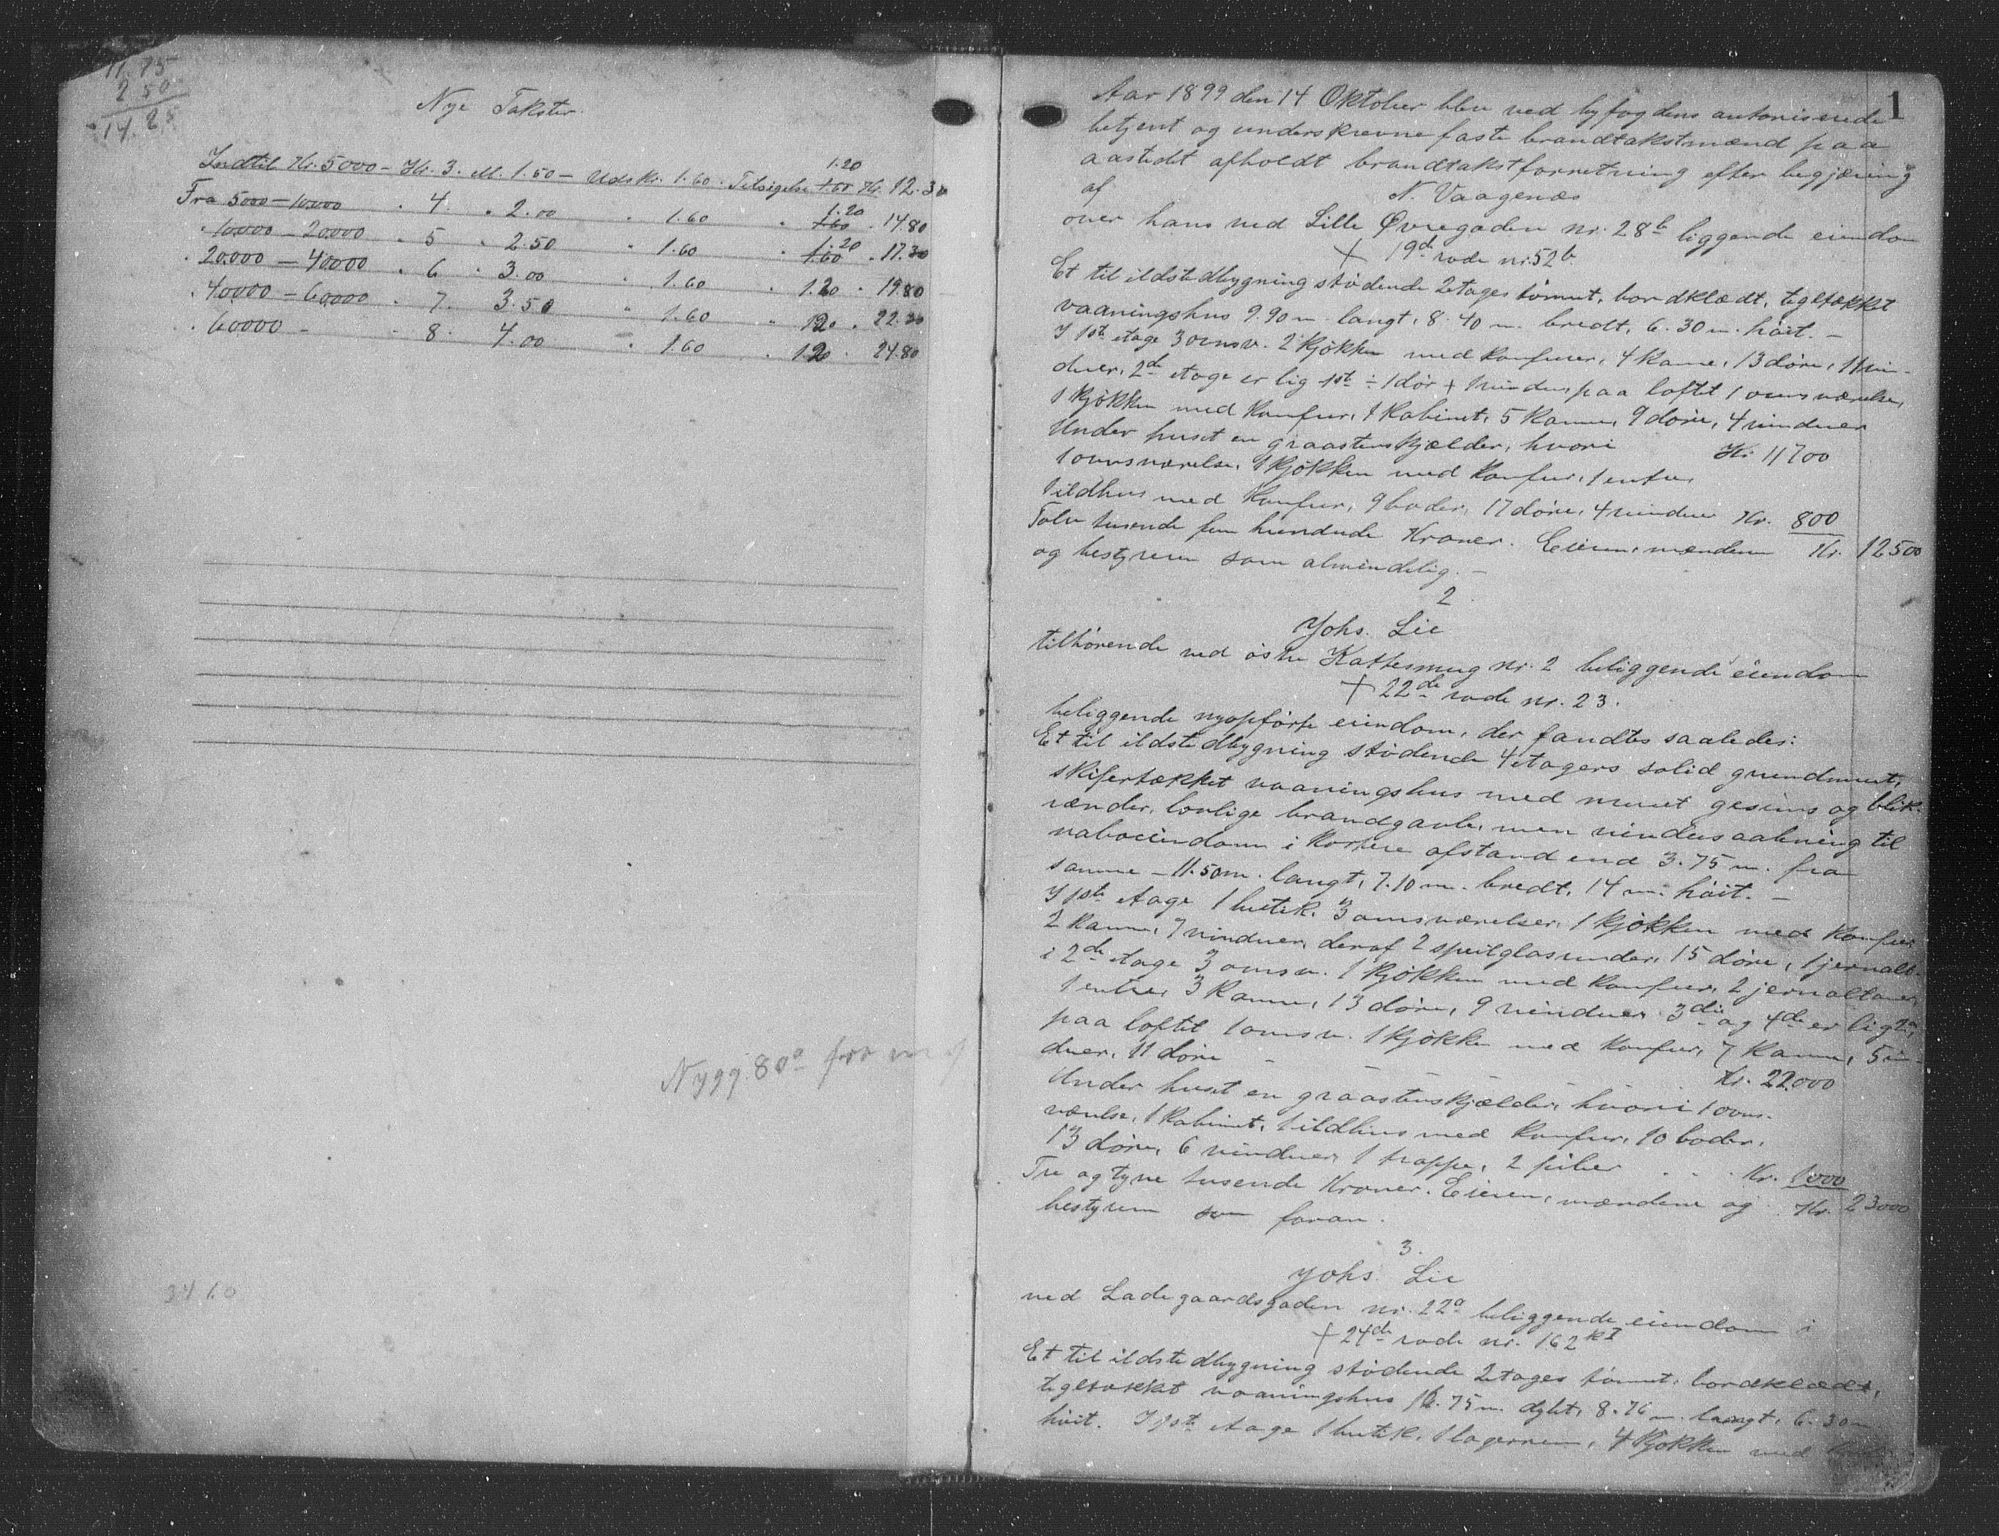 11.75
2 50
14.25
Nye Takster.
Indtil Kr. 5000 - Kr. 3. M. 1.50 - Udskr. 1.60. Tilsigelse 1.60 1.20 Kr. 12.30
Fra 5000 - 10000 " 4 " 2.00 " 1.60 " 1.60 1.20 " 14.80
" 10000 - 20000 " 5 " 2.50 " 1.60 " 1.60 1.20 " 17.30
" 20.000 - 40000 " 6 " 3.00 " 1.60 " 1.20 " 19.80
" 40000 - 60000 " 7. 3.50 " 1.60 " 1.20 " 22.30
" 60000 - " 8. 4.00 " 1.60 " 1.20 " 24.80
Nygg. 80a
2460
1
Aar 1899 den 14 Oktober blev ved byfogdens autoriserede
betjent og underskrevne faste brandtakstmænd paa
aastedt afholdt brandtakstforretning efter begjæring
af N. Vaagenæs
over hans ved Lille Øvregaden nr. 28b liggende eiendom
+ 19de rode nr. 52b.
Et til ildstedbygning stødende 2etages tømret, bordklædt, tegltækket
vaaningshus 9.90 m. langt, 8.40 m. bredt, 6.30 m. høit. -
I 1ste etage 3 ovnsv. 2 kjøkken med komfurer, 4 kamre, 13 døre, 11 vin-
duer, 2de etage er lig 1ste ÷ 1 dør + 1 vindu, paa loftet 1 ovnsværelse,
1 kjøkken med komfur, 1 kabinet, 5 kamre, 9 døre, 4 vinduer
Kr. 11700
Under huset en graastenskjælder, hvori
1 ovnsværelse, 1 kjøkken med komfur, 1 entre,
1 ildhus med komfur, 9 boder, 17 døre, 4 vinduer Kr. 800
Tolv tusende fem hundrede Kroner. Eieren, mændene Kr. 12500
og bestyreren som almindelig. -
2
Johs. Lie
tilhørende ved østre Kattesmug nr. 2 beliggende eiendom
+ 22de rode nr. 23.
beliggende nyopførte eiendom, der fandtes saaledes:
Et til ildstedbygning stødende 4etagers solid grundmuret,
skifertækket vaaningshus med muret gesims og blik-
rænder, lovlige brandgavle, men vinduesaabning til
naboeiendom i kortere afstand end 3.75 m. fra
samme - 11.50 m. langt, 7.10 m. bredt, 14 m. høit. -
I 1ste etage 1 butik, 3 ovnsværelser, 1 kjøkken med komfur,
2 kamre, 7 vinduer, deraf 2 speilglasruder, 15 døre, 1 jernalt-
i 2de etage 3 ovnsv. 1 kjøkken med komfur, 2 jernaltaner,
1 entre, 3 kamre, 13 døre, 9 vinduer 3die og 4de er lig 2den,
paa loftet 1 ovnsv. 1 kjøkken med komfur, 7 kamre, 5 vin-
duer, 11 døre - Kr. 22.000
Under huset en graastenskjælder, hvori 1 ovns-
værelse, 1 kabinet, 1 ildhus med komfur, 10 boder,
13 døre, 6 vinduer, 1 trappe, 2 piler Kr. 1000
Tre og tyve tusende Kroner. Eieren, mændene og Kr. 23000
bestyreren som foran.
3.
Johs. Lie
ved Ladegaardsgaden nr. 22a beliggende eiendom i
+ 24de rode nr. 162 kI
Et til ildstedbygning stødende 2etages tømret, bordklædt,
tegltækket vaaningshus 16.75 m. dybt, 8.76 m. langt, 6.30 m.
høit. I 1ste etage 1 butik, 1 lagerrum, 4 kjøkken med